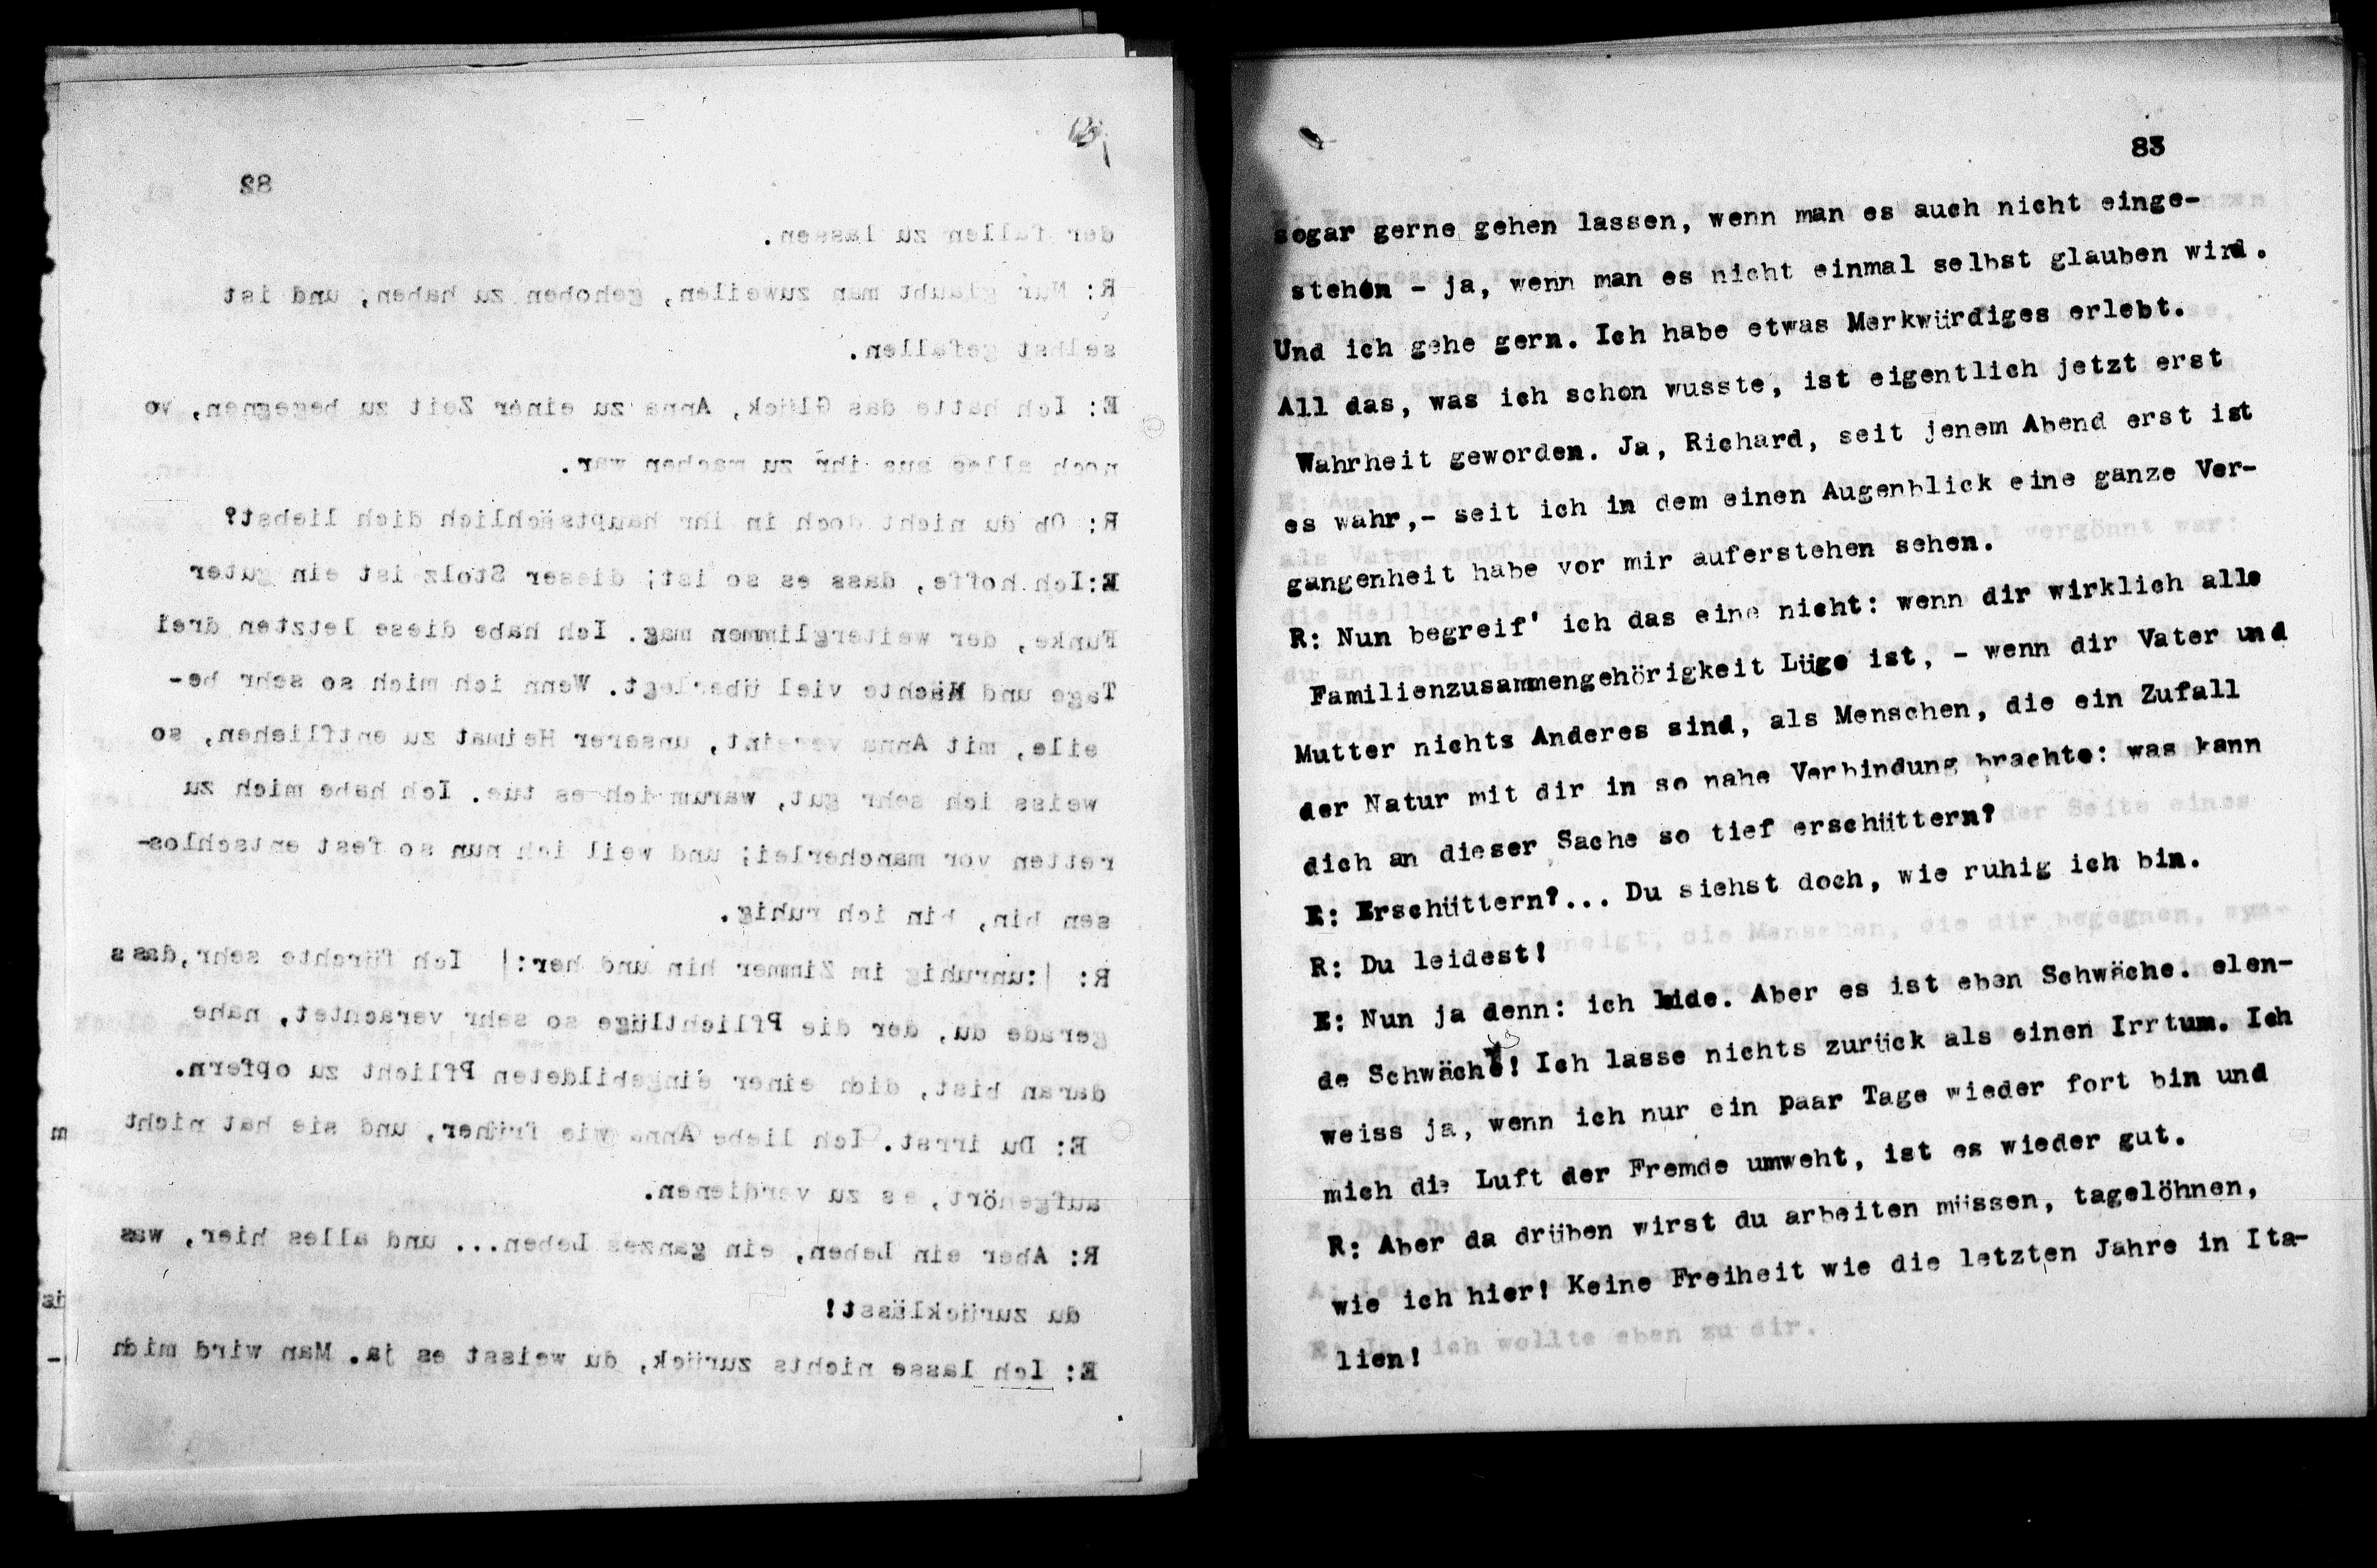 82
der fallen zu lassen.
R: Nur glaubt man zuweilen, gehoben zu haben, und ist
selbst gefallen.
E: Ich hatte das Glück, Anna zu einer Zeit zu begegnen, wo
noch alles aus ihr zu machen war.
R: Ob du nicht doch in ihr hauptsächlich dich liebst?
E: Ich hoffe, dass es so ist; dieser Stolz ist ein guter
Funke, der weiterglimmen mag. Ich habe diese letzten drei
Tage und Nächte viel überlegt. Wenn ich mich so sehr be-
eile, mit Anna vereint, unserer Heimat zu entfliehen, so
weiss ich sehr gut, warum ich es tue. Ich habe mich zu
retten vor mancherlei; und weil ich nun so fest entschlos-
sen bin, bin ich ruhig.
R: |:unruhig im Zimmer hin und her:| Ich fürchte sehr, dass
gerade du, der die Pflichtlüge so sehr verachtet, nahe
daran bist, dich einer eingebildeten Pflicht zu opfern.
E: Du irrst. Ich liebe Anna wie früher, und sie hat nicht
aufgehört, es zu verdienen.
R: Aber ein Leben, ein ganzes Leben... und alles hier, was
du zurücklässt!
E: Ich lasse nichts zurück, du weisst es ja. Man wird mich
83
sogar gerne gehen lassen, wenn man es auch nicht einge-
stehen - ja, wenn man es nicht einmal selbst glauben wird.
Und ich gehe gern. Ich habe etwas Merkwürdiges erlebt.
All das, was ich schon wusste, ist eigentlich jetzt erst
Wahrheit geworden. Ja, Richard, seit jenem Abend erst ist
es wahr,- seit ich in dem einen Augenblick eine ganze Ver-
gangenheit habe vor mir auferstehen sehen.
R: Nun begreif' ich das eine nicht: wenn dir wirklich alle
Familienzusammengehörigkeit Lüge ist, - wenn dir Vater und
Mutter nichts Anderes sind, als Menschen, die ein Zufall
der Natur mit dir in so nahe Verbindung brachte: was kann
dich an dieser Sache so tief erschüttern?
E: Erschüttern?... Du siehst doch, wie ruhig ich bin.
R: Du leidest!
E: Nun ja denn: ich leide. Aber es ist eben Schwäche. elen-
de Schwäche! Ich lasse nichts zurück als einen Irrtum. Ich
weiss ja, wenn ich nur ein paar Tage wieder fort bin und
mich die Luft der Fremde umweht, ist es wieder gut.
R: Aber da drüben wirst du arbeiten müssen, tagelöhnen,
wie ich hier! Keine Freiheit wie die letzten Jahre in Ita-
lien!